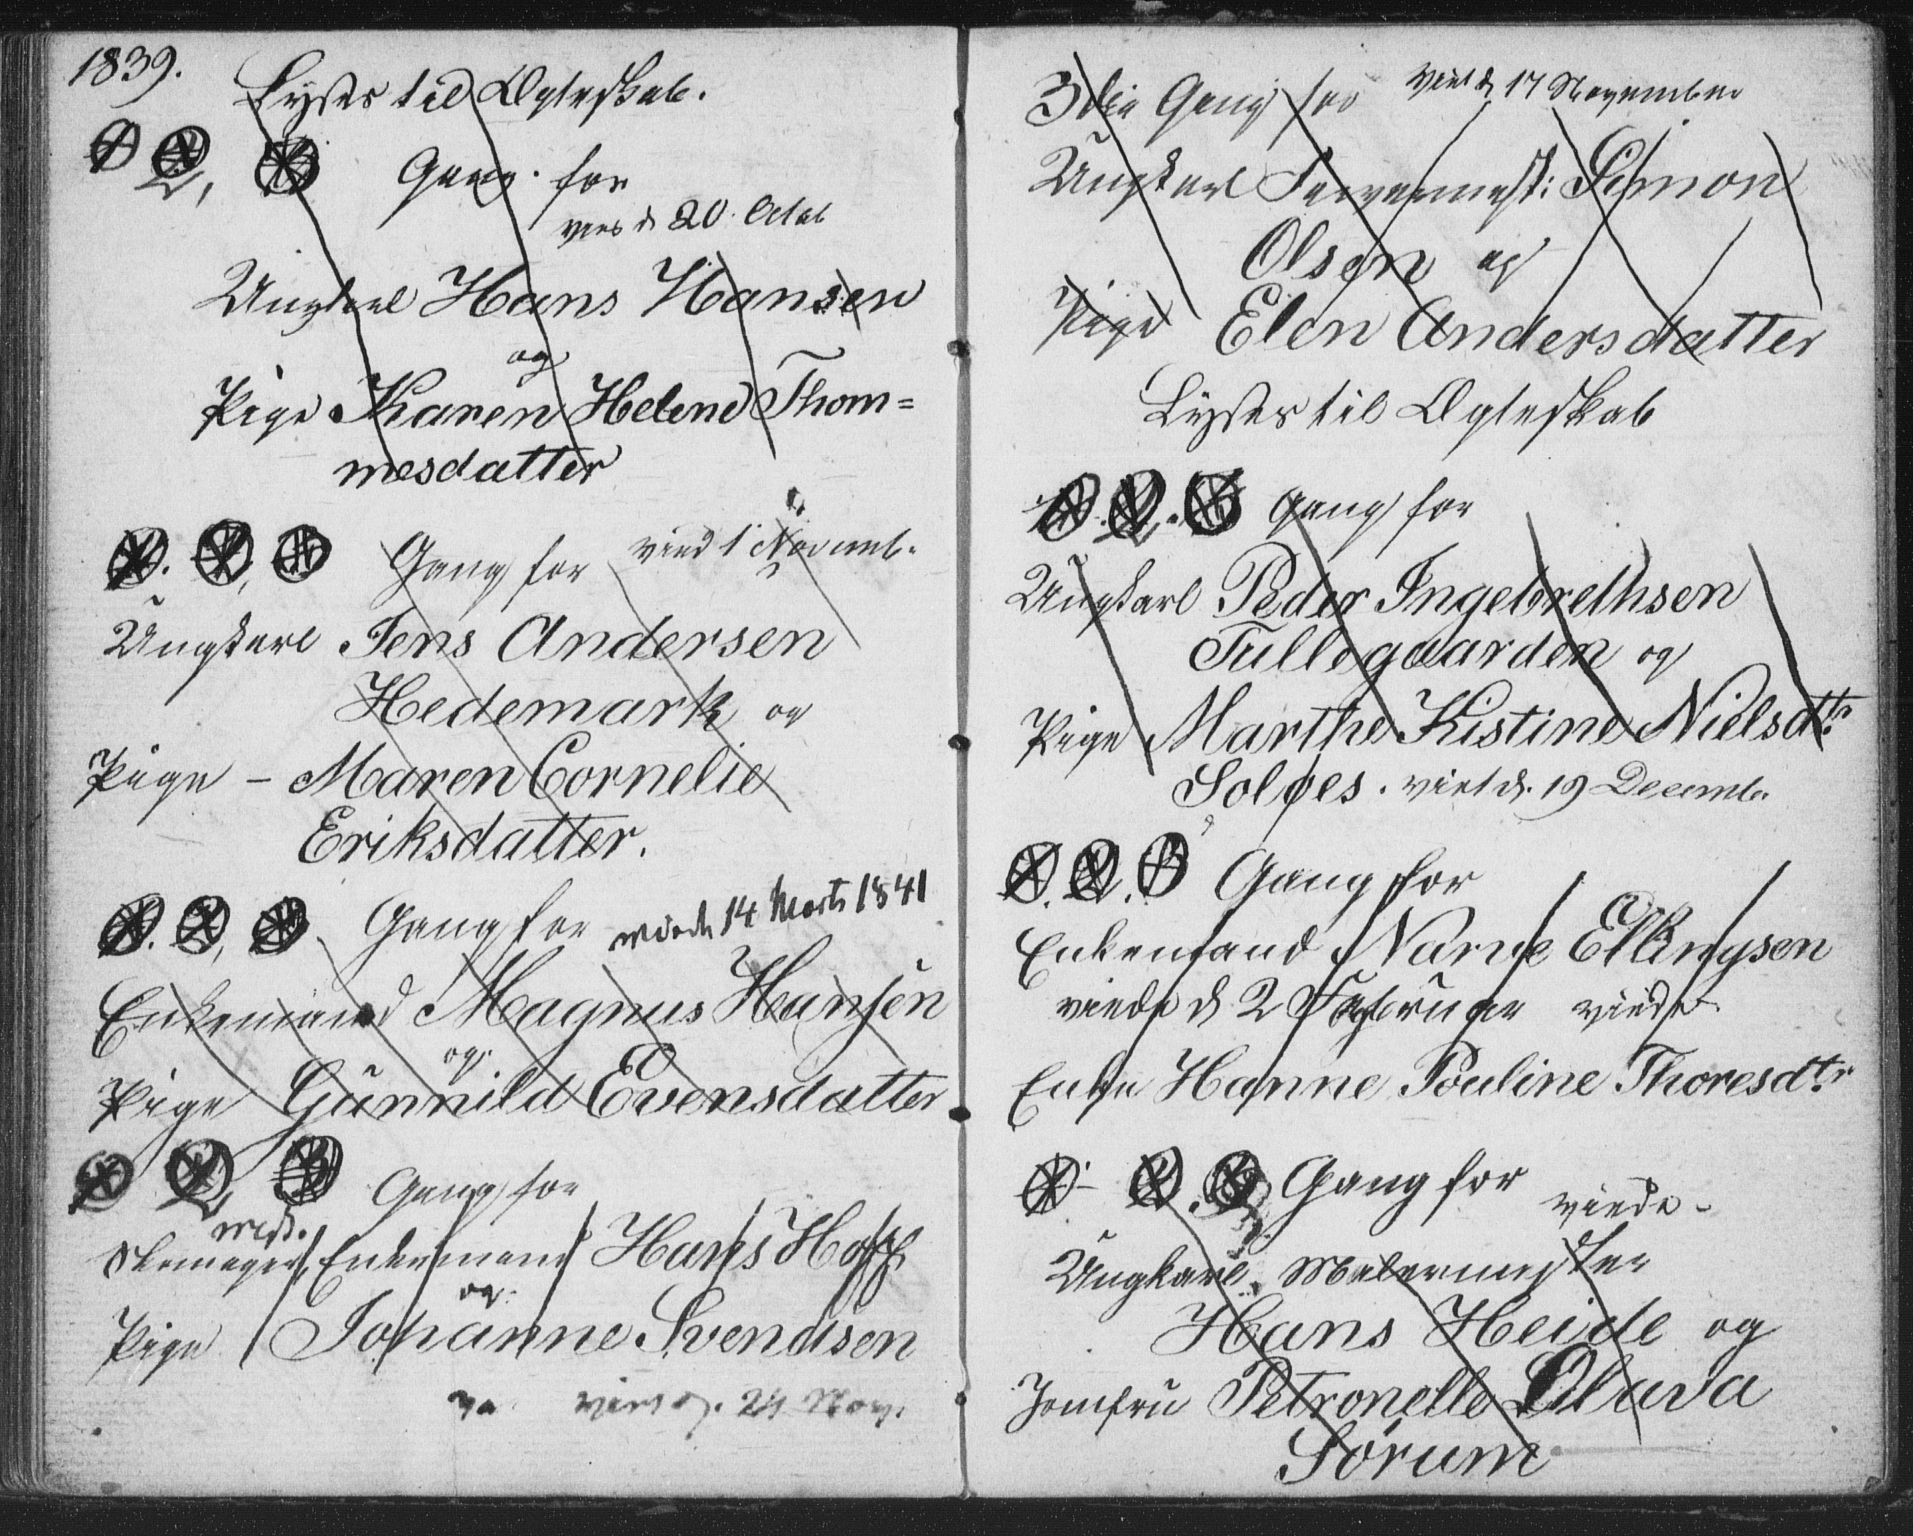 1839.
Lyses til Ægteskab.
1 2, 3 Gang for
vied d 20. Octob
Ungkarl Hans Hansen
og
Pige Karen Helene Thom=
mesdatter
1. 2, 3 Gang for vied 1 Novemb.
Ungkarl Jens Andersen
Hedemark og
Pige – Maren Cornelie
Eriksdatter.
1. 2, 3. Gang for viede 14 Marts 1841
Enkemand Magnus Hansen
og
Pige Gunnild Evensdatter
1 2, 3 Gang for
mest.
Enkemand Hans Hoff
og
Pige Johanne Svendsen
24 Nov.
3die Gang for Vied d 17 November
Ungkarl Farvermest: Simon
Olsen og
Pige Elen Andersdatter
Lyses til Ægteskab
1. 2. 3 Gang for
Ungkarl Peder Ingebrethsen
Tullegaarden og
Pige Marthe Kistine Nielsdtr
Soløes. viet d. 19 Decemb.
1. 2. 3 Gang for
Enkemand Narve Ellingsen
viede d 2 Februar viede
Enke Hanne Pouline Thoresdtr
1. 2. 3 Gang for viede.
Ungkarl. Malermester
Hans Heide og
Jomfru Petronelle Olava
Sørum